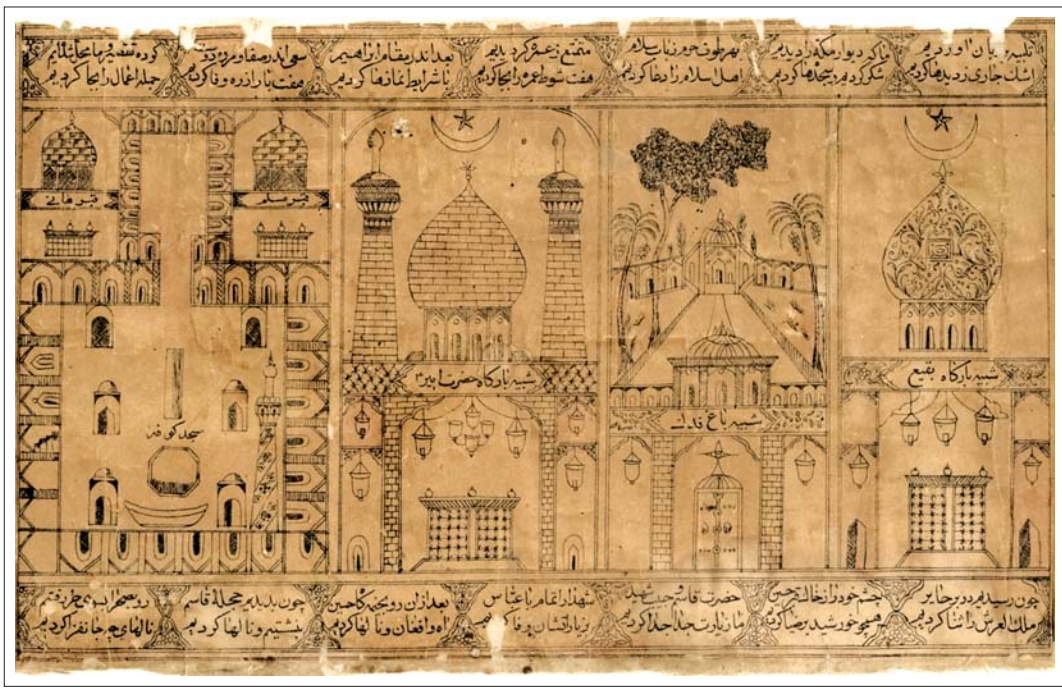 تلبیه بر زبان آوردیم
اشک جاری ز دیدها کردیم
تا که دیوار مکه را دیدیم
شکر کردیم و سجدها کردیم
بهر طوف حرم ز باب سلام
اهل اسلام را دعا کردیم
متمتع ز عمره گردیدیم
هفت شوط عمره را بجا کردیم
بعد اندر مقام ابراهیم
با شرایط نمازها کردیم
سعی اندر صفا و مروه
هفت بار از ره وفا کردیم
کرده تقصیر و ما
جمله اعمال را بجا کردیم
قبر مسلم
قبر هانی
شبیه بارگاه بقیع
شبیه بارگاه حضرت امیر
شبیه باغ فدک
مسجد کوفه
چون رسیدیم در بر حایر
ملک العرش را ثنا کردیم
چشم خود را ز خاک قبر حسین
همچو خورشید پر ضیا کردیم
حضرت و حبیب شهید
ما زیارت جدا جدا کردیم
شهدا را تمام با عباس
وفا کردیم
بعد از آن رو بخیمه کاه حسین
آه و افغان و نالها کردیم
چون بدیدیم حجله قاسم
بنشستیم و نالها کردیم
رو بصحرا بسوی حر رفتم
نالهای چه جانفزا کردیم